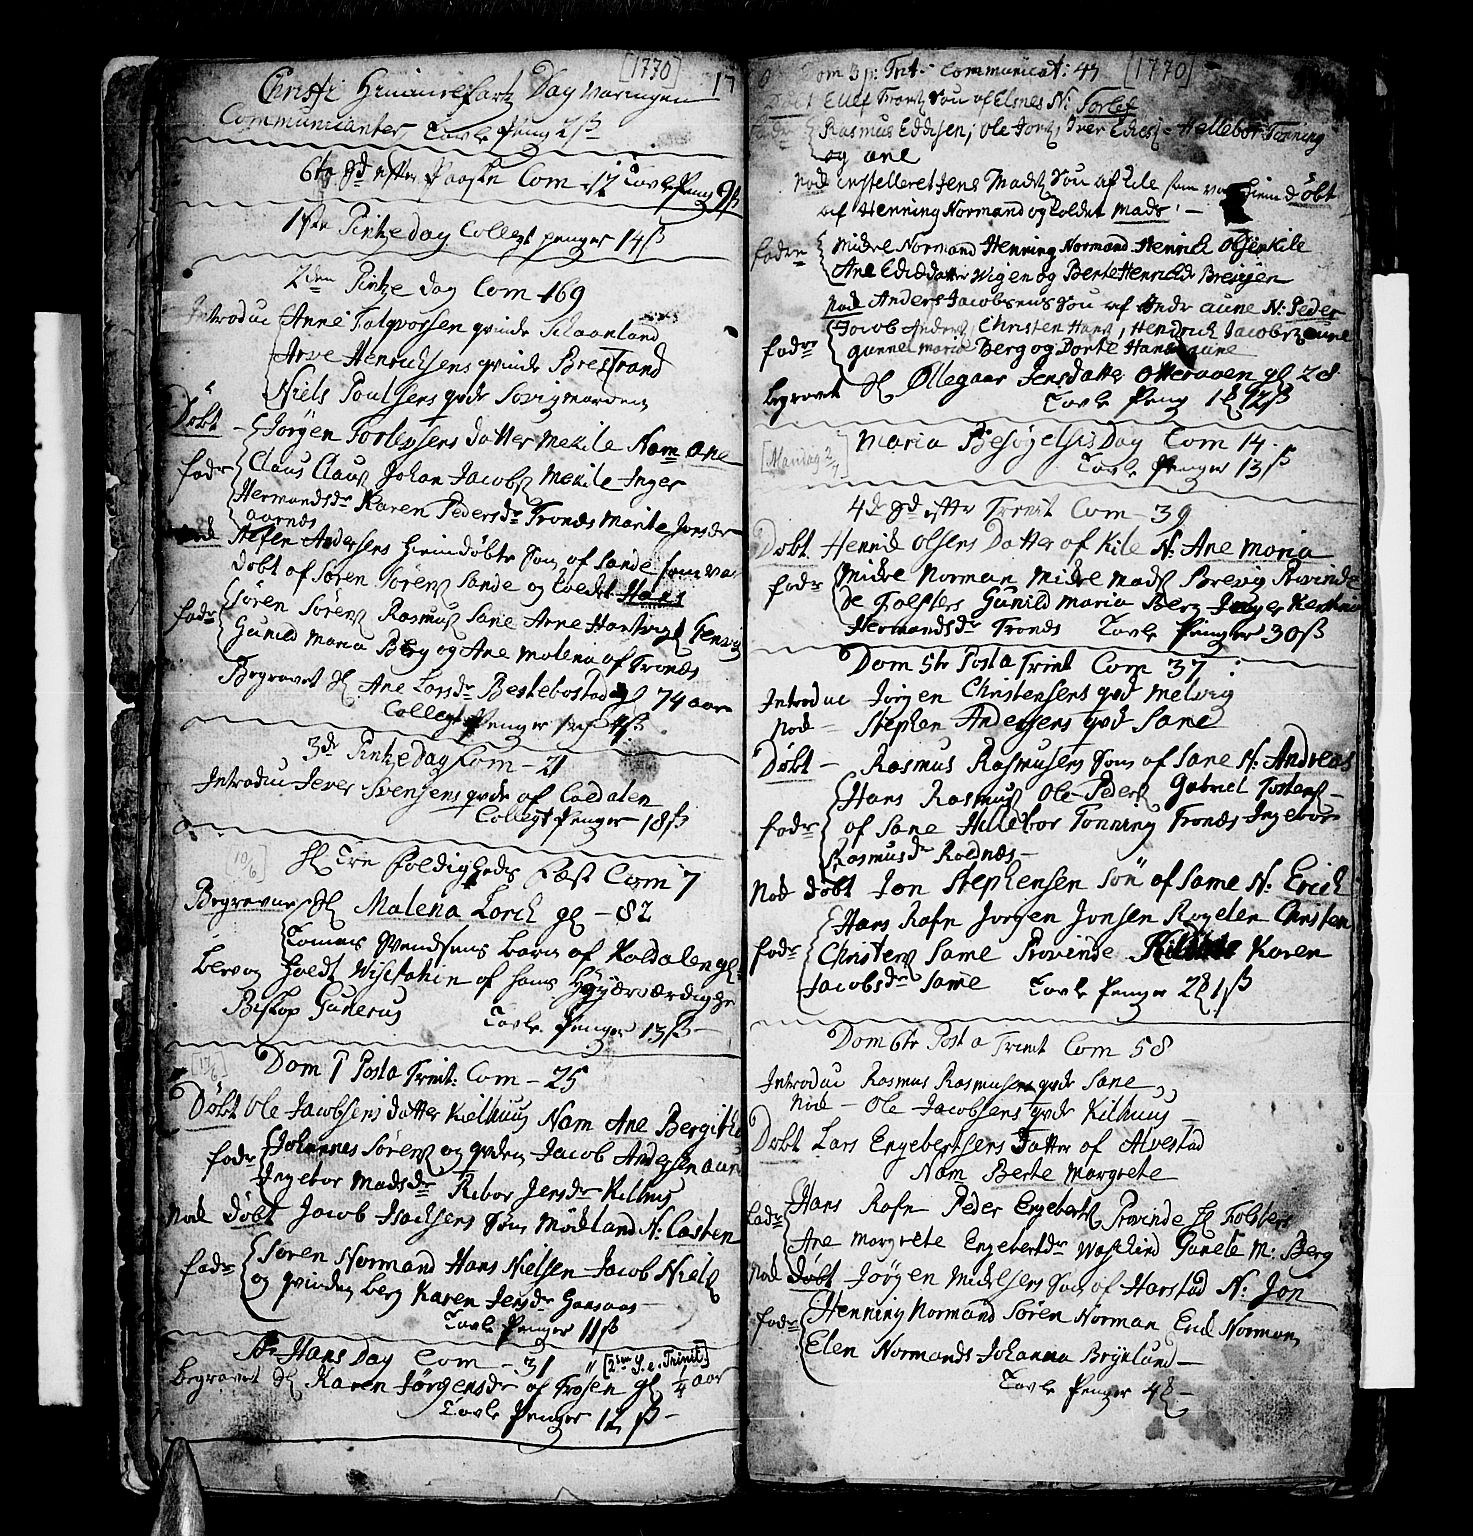 [1770] 17
Christi Himmelfartz Day var ingen
Communicanter Tavle Peng 2 ß
6te Sd efter Paaske Com 12 Tavle Peng 9 ß
1ste Pintze day Collegt penger 14 ß
2den Pintze day Com 169
Introduc Anne Talgvorsen qvinde
Arve Henrichsens qvinde Brestrand
Niels Poulsens qvde
Døbt - Jørgen Torlepsens datter Mekile Nam Ane
fadr Claus Claus Johan Jacobs Mekile Inger
Hermandsdr Karen Pedersdr Tronæs Marite Jensdr
aarnes
Andersens hiemdøbte Søn af Sande som var
døbt af Søren Sørens Sande og kaldet Hans
fadr Søren Sørens Rasmus Sane Arne
Gunild Maria Berg og Ane Malena af Tronæs
Begravet Sl Ane Larsdr gl 74 aar
Collegt Penger
3de Pintze Day Com - 21
Introduc Iver Svensens qvde af Coldalen
Collegt Penger 18 ß
[10/6] Hl Tre foldigheds Fæst Com 7
Begravne Sl Malena Lorck gl - 82
Tomas Svendsens barn af Koldalen gl
blev og holdt Visitasin af hans Høyærværdighe
Biskop Gunerus Tavle Penger 13 ß -
[17/6] Dom 1 Post a Trinit: Com - 25
Døbt Ole Jacobsens datter Kielhuus Nam Ane Bergithe
fadr Johannes Sørens og qvden Jacob Andersen aune
Ingebor Madsdr Ribor Jensdr Kilhus
Nod døbt Jacob Isachsens Søn Mødland N: Casten
fadr Søren Normand Hans Nielsen Jacob Niels
og qvinden berg Karen Jensdr Gausaas -
Tavle Penger 11 ß
St Hans Day Com - 31 " [2den S. e. Trinit.]
begravet Sl Karen Jørgensdr af Trosen gl 1/4 aar
Tavle Penger 12 ß -
Dom 3 p: Trit: Communicat: 43 [1770]
Døbt Ellef Søn af Elsnes N: Torlef
fadr Rasmus Eddisen, Ole Iver Hellebor Tønning
og ane
Nod instelleret Jens Mads Søn af Kile som var hiemdøbt
af Henning Normand og koldet Mads -
fadrne Mickel Normand Henning Normand Henrich Olsen Kile
Ane Edisdatter Vigen og Berte Henrichsdr Brevigen
Nod Anders Jacobsens Søn af Andr aune N: Peder
fadre Jacob Anders, Christen Hans, Hendrich Jacobs aune
gunnel maria Berg og Dorte Hans aune
begravet Sl Øllegaar Jensdatter Otteraaen gl 28
Tavle Peng 12 ß
[Mandag 2/7] Maria Besøgelsis Day Com 14
Tavle Penger 13 ß
4de Sd efter Trinit Com - 39
Døbt Henrik Olsens Datter af Kile N: Ane Maria
fadr Mickel Norman Mickel Mads Brevig Provinde
Sl Folsters Gunild Maria Berg Inger Kerstina
Hermandsdr Tronds Tavle Penger 30 ß
Dom 5te Post a Trinit Com 37
Introduc Jørgen Christensens qvd Melvig
Nod - Stephen Andersens qvd Sane
Døbt - Rasmus Rasmusens Søn af Sane N: Andreas
Hans Rasmus Ole Peders Gabriel Tostens -
fadr af Sane Hillebor Tønning Tronds Ingebor
Rasmusdr Rodnæs -
Nod døbt Jon Stephensen Søn af Same N: Erick
Hans Rafn Jørgen Jonsen Røgelen Christen
fadr Christens Same Provinde Karen
Jacobsdr Same Tavle Penger 2 1 ß
Dom 6te Post a Trinit Com 58
Introduc Rasmus Rasmusens qvde Sane
Nod - Ole Jacobsens qvde Kilhuus
Døbt Lars Engebertsens Datter af Alvestad
Nam Berte Margrete
fadr Hans Rafn Peder Engeberts Provinde Sl Folsters
Ane Margrete Engebertdr Gunele M: Berg
Nod døbt Jørgen Mickelsens Søn af Harstad N: Jon
fadr Henning Normand Søren Norman Erick Norman
Elen Normands Johanna Brynlund -
Tavle Penger 4